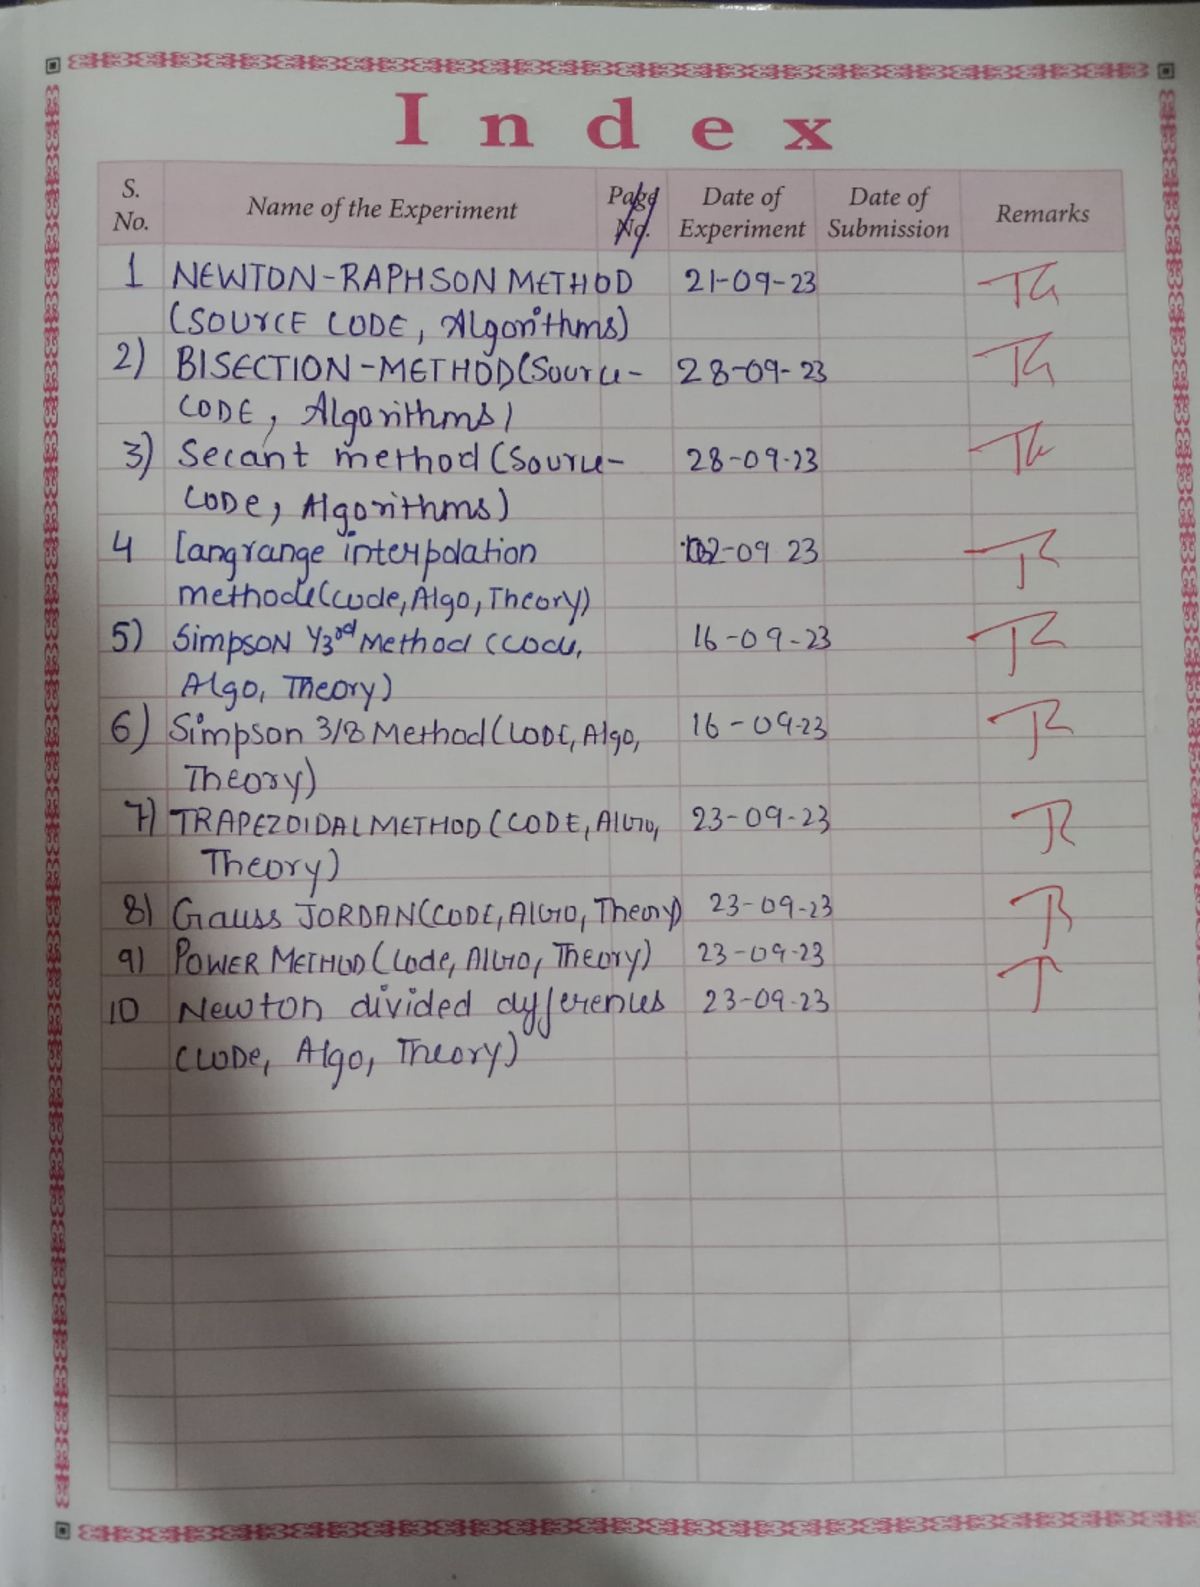 Index
S. No. Name of the Experiment Page No. Date of Experiment Date of Submission Remarks
1 NEWTON-RAPHSON METHOD 21-09-23
(SOURCE CODE, Algorithms)
2) BISECTION-METHOD(Source- 28-09-23
CODE, Algorithms)
3) Secant method (Source- 28-09-23
CODE, Algorithms)
4 Langrange interpolation 02-09 23
methode(code, Algo, Theory)
5) Simpson 1/3rd Method (Code, 16-09-23
Algo, Theory)
6) Simpson 3/8 Method(CODE, Algo, 16-09-23
Theory)
7) TRAPEZOIDAL METHOD (CODE, ALGO, 23-09-23
Theory)
8) Gauss JORDAN(CODE, ALGO, Theory) 23-09-23
9) POWER METHOD (Code, ALGO, Theory) 23-09-23
10 Newton divided differences 23-09-23
(CODE, Algo, Theory)